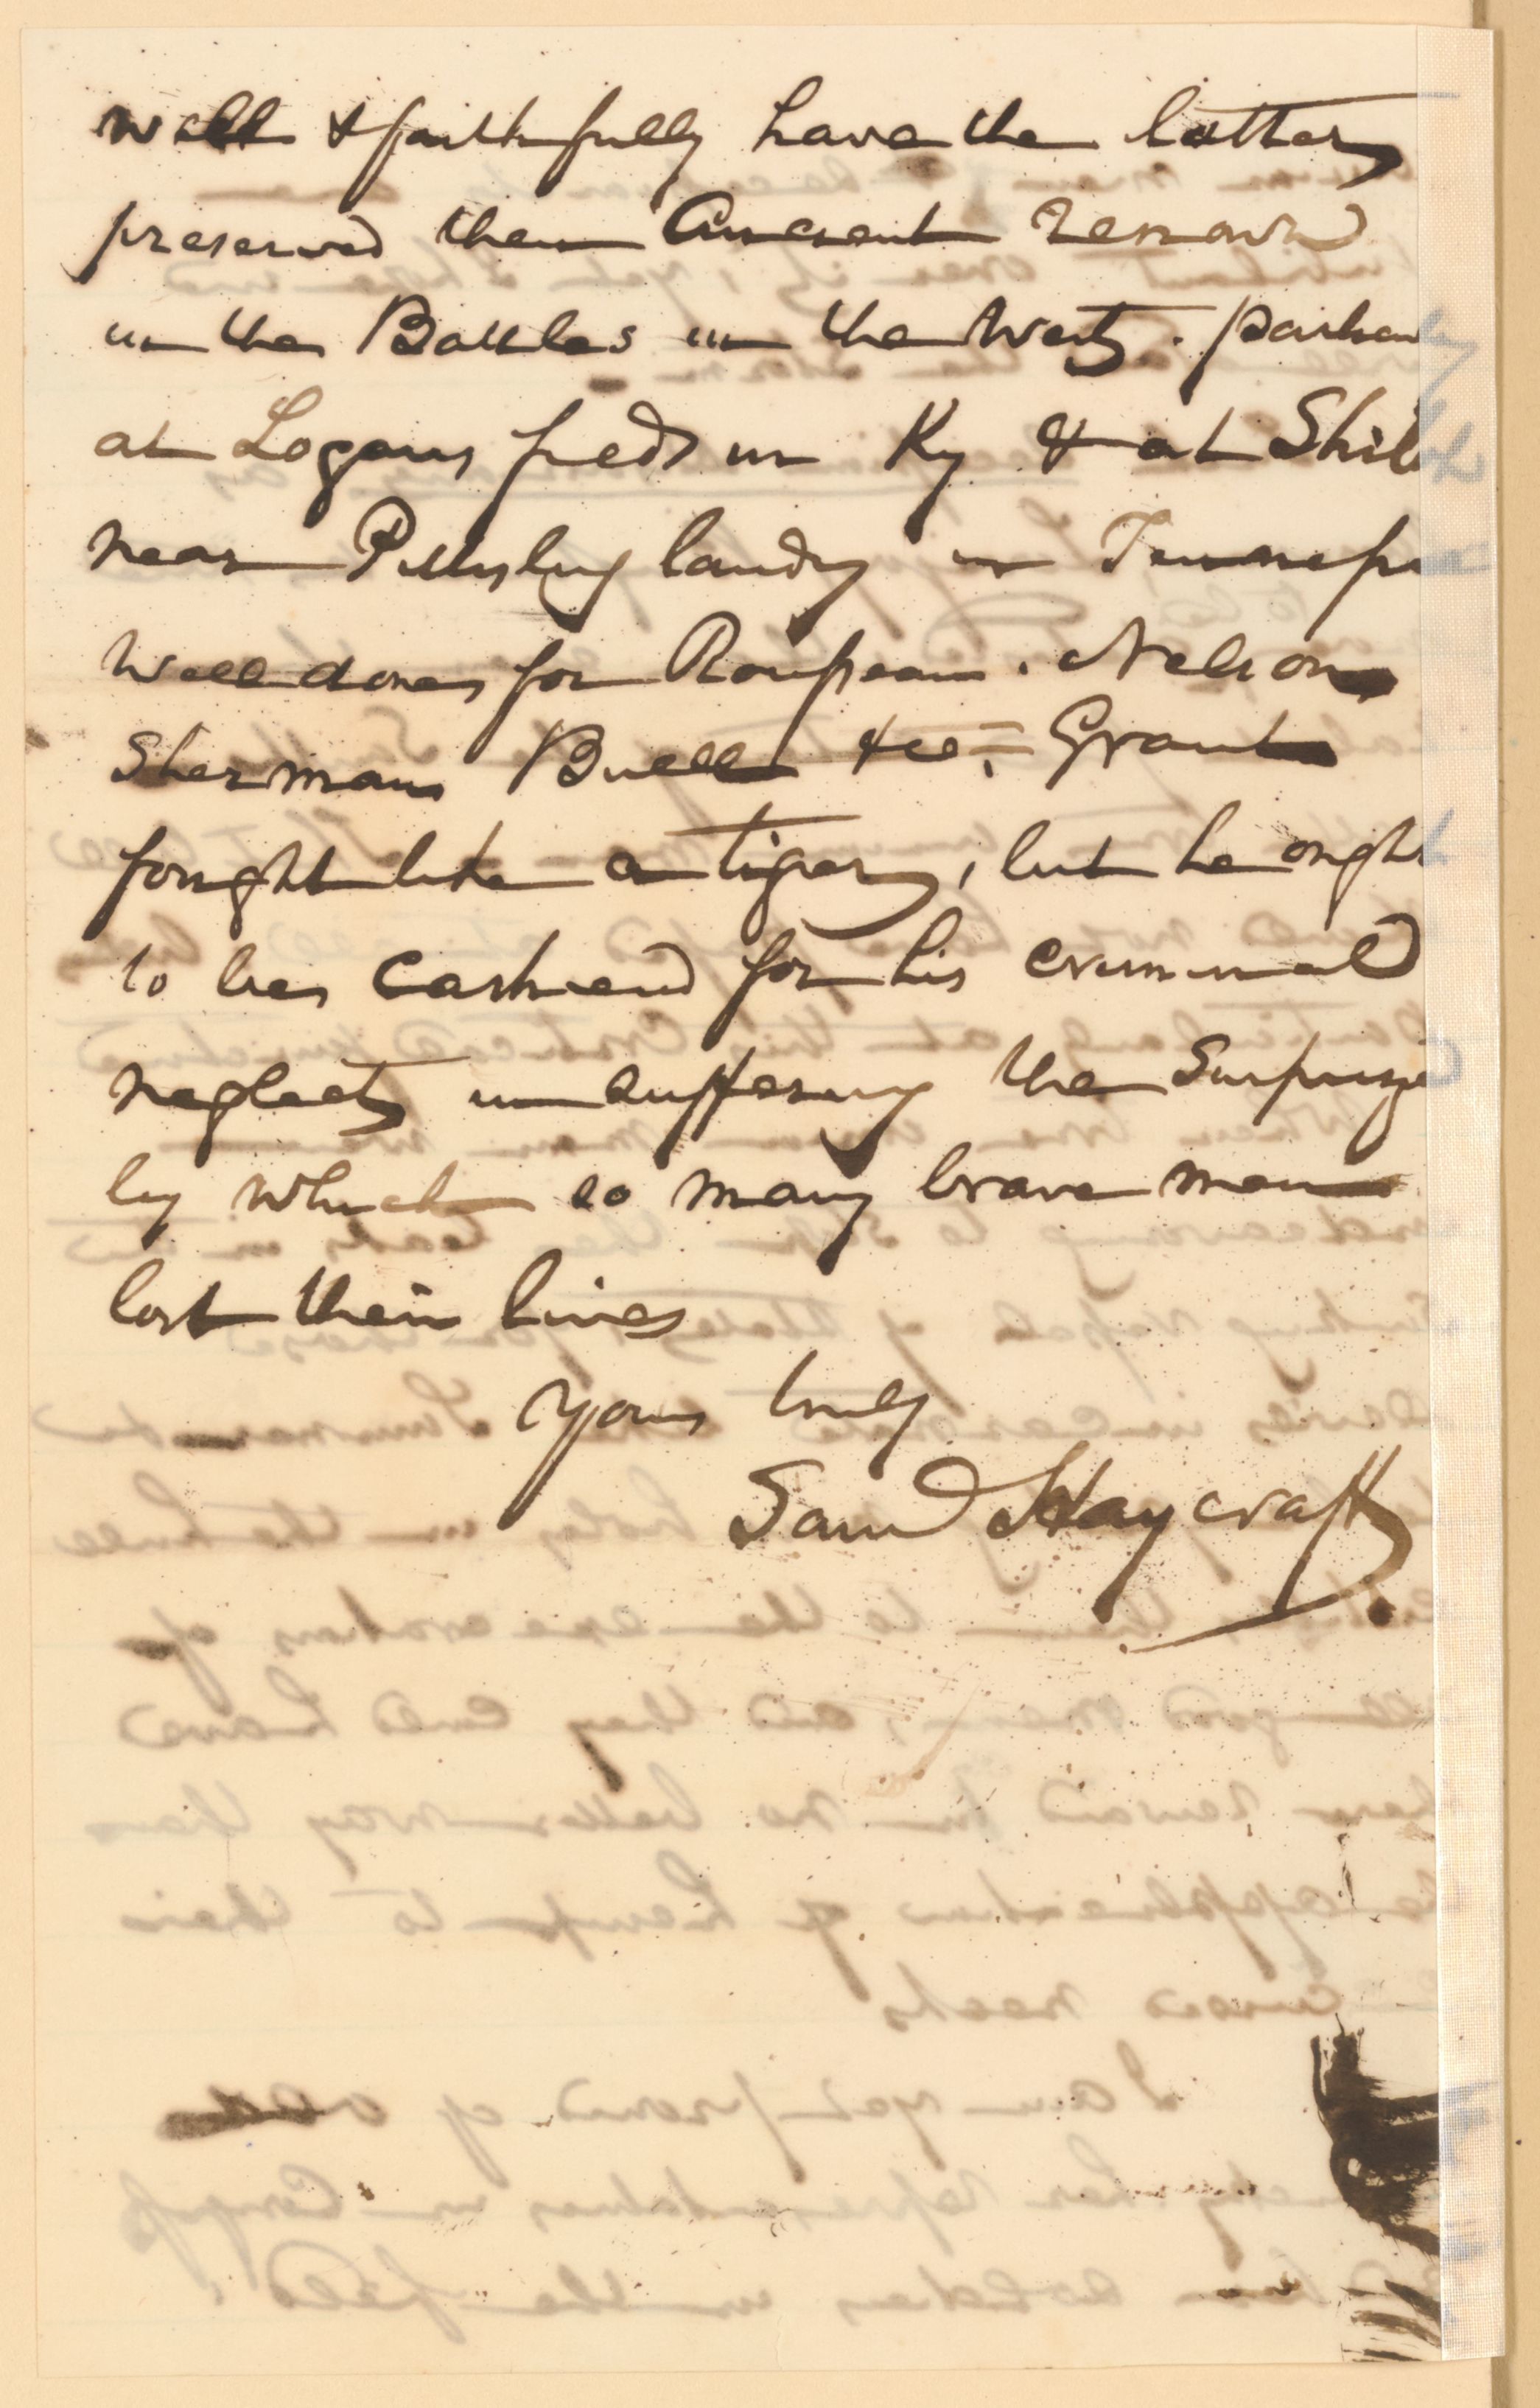 well & faithfully have the latter
preserved their Ancient renown
in the Battles in the West.
at Logans field in Ky & at Shiloh
near Pittsburg landing in Tennessee
Well done for Rousseau. Nelson
Sherman Buell &ce. Grant
fought like a tiger, but he ought
to be Cashierd for his criminal
neglect in suffering the Surprize
by which so many brave men
lost their lives
Yours truly
Saml Haycraft